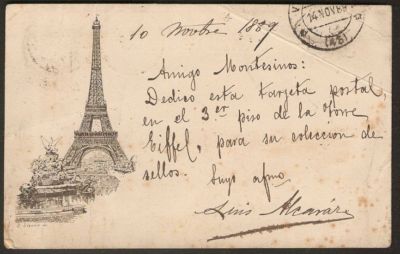 10 Novbre 1889
14 NOV 89
(46)
Amigo Montesinos:
Dedico esta targeta postal
en el 3er piso de la Torre
Eiffel, para su coleccion de
sellos.
Suyo afmo
Luis Alcaráz